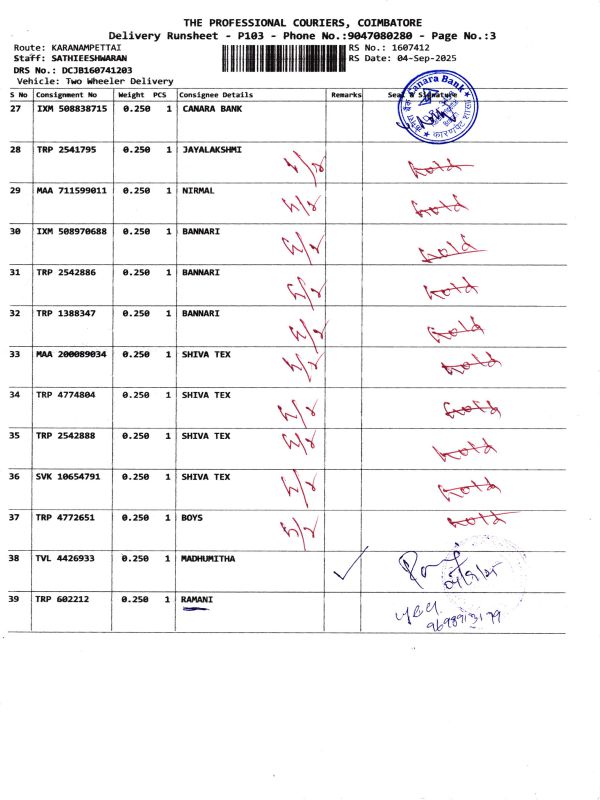 THE PROFESSIONAL COURIERS, COIMBATORE
Delivery Runsheet - P103 - Phone No.:9047080280 - Page No.:3
Route: KARANAMPETTAI RS No.: 1607412
Staff: SATHIEESHWARAN RS Date: 04-Sep-2025
DRS No.: DCJB160741203
Vehicle: Two Wheeler Delivery
S No Consignment No Weight PCS Consignee Details Remarks Seal & Signature
27 IXM 508838715 0.250 1 CANARA BANK Canara Bank
28 TRP 2541795 0.250 1 JAYALAKSHMI N/r Hold
29 MAA 711599011 0.250 1 NIRMAL N/r Hold
30 IXM 508970688 0.250 1 BANNARI N/r Hold
31 TRP 2542886 0.250 1 BANNARI N/r Hold
32 TRP 1388347 0.250 1 BANNARI N/r Hold
33 MAA 200089034 0.250 1 SHIVA TEX N/r Hold
34 TRP 4774804 0.250 1 SHIVA TEX N/r Hold
35 TRP 2542888 0.250 1 SHIVA TEX N/r Hold
36 SVK 10654791 0.250 1 SHIVA TEX N/r Hold
37 TRP 4772651 0.250 1 BOYS N/r Hold
38 TVL 4426933 0.250 1 MADHUMITHA
39 TRP 602212 0.250 1 RAMANI